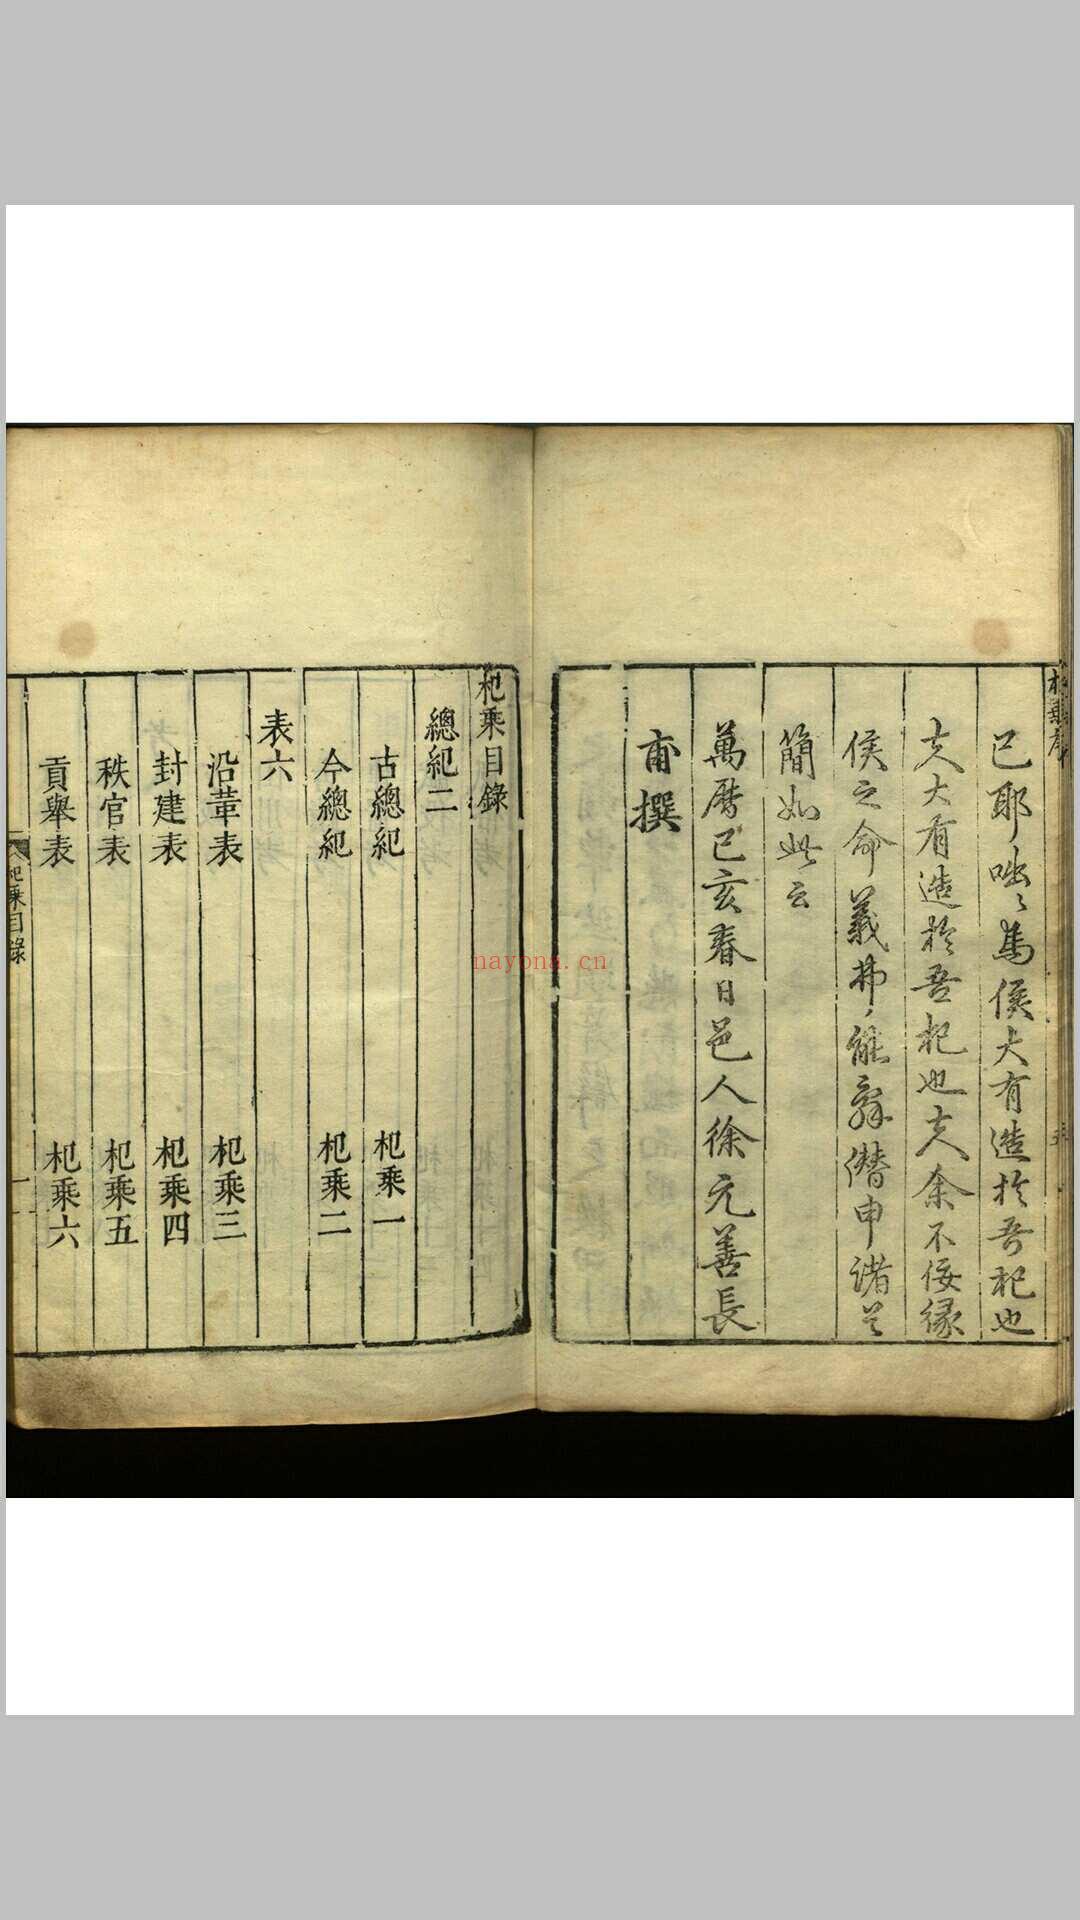 杞乘序
已耶咄咄馬侯大有造於吾杞也
夫大有造於吾杞也夫余不佞緣
侯之命義弗能辭僭申諸
簡如此云
萬曆己亥春日邑人徐元善長
甫撰
杞乘目錄
總紀二
古總紀 杞乘一
今總紀 杞乘二
表六
沿革表 杞乘三
封建表 杞乘四
秩官表 杞乘五
貢舉表 杞乘六
杞乘目錄 一
nayona.cn